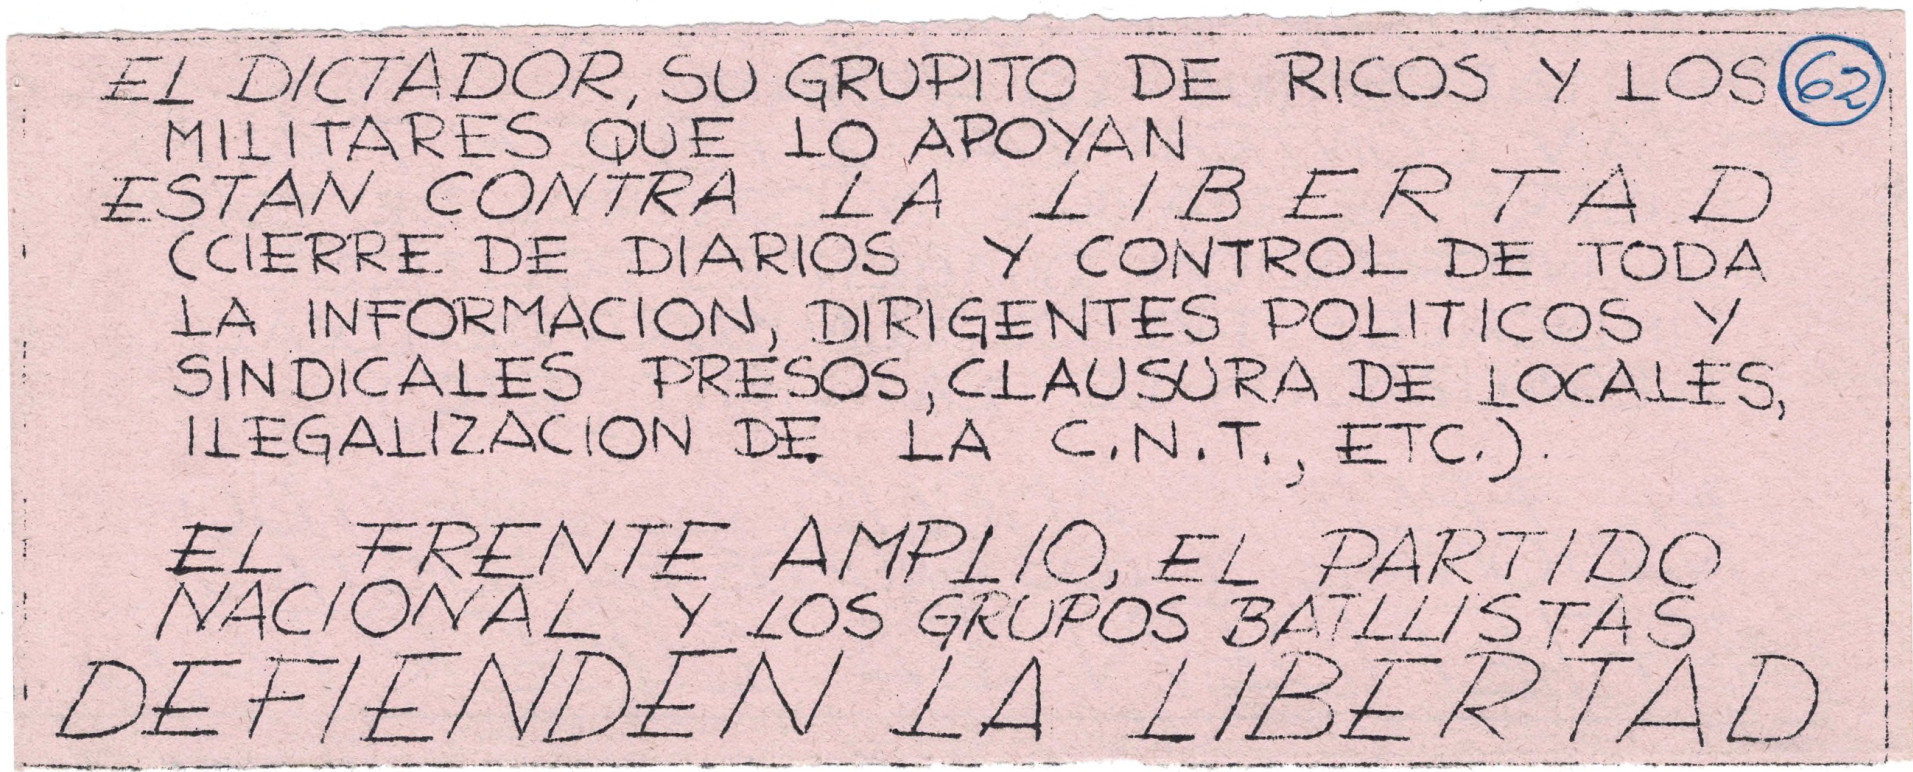 EL DICTADOR, SU GRUPITO DE RICOS Y LOS 62
MILITARES QUE LO APOYAN
ESTAN CONTRA LA LIBERTAD
(CIERRE DE DIARIOS Y CONTROL DE TODA
LA INFORMACION, DIRIGENTES POLITICOS Y
SINDICALES PRESOS, CLAUSURA DE LOCALES,
ILEGALIZACION DE LA C.N.T., ETC.).
EL FRENTE AMPLIO, EL PARTIDO
NACIONAL Y LOS GRUPOS BATLLISTAS
DEFIENDEN LA LIBERTAD